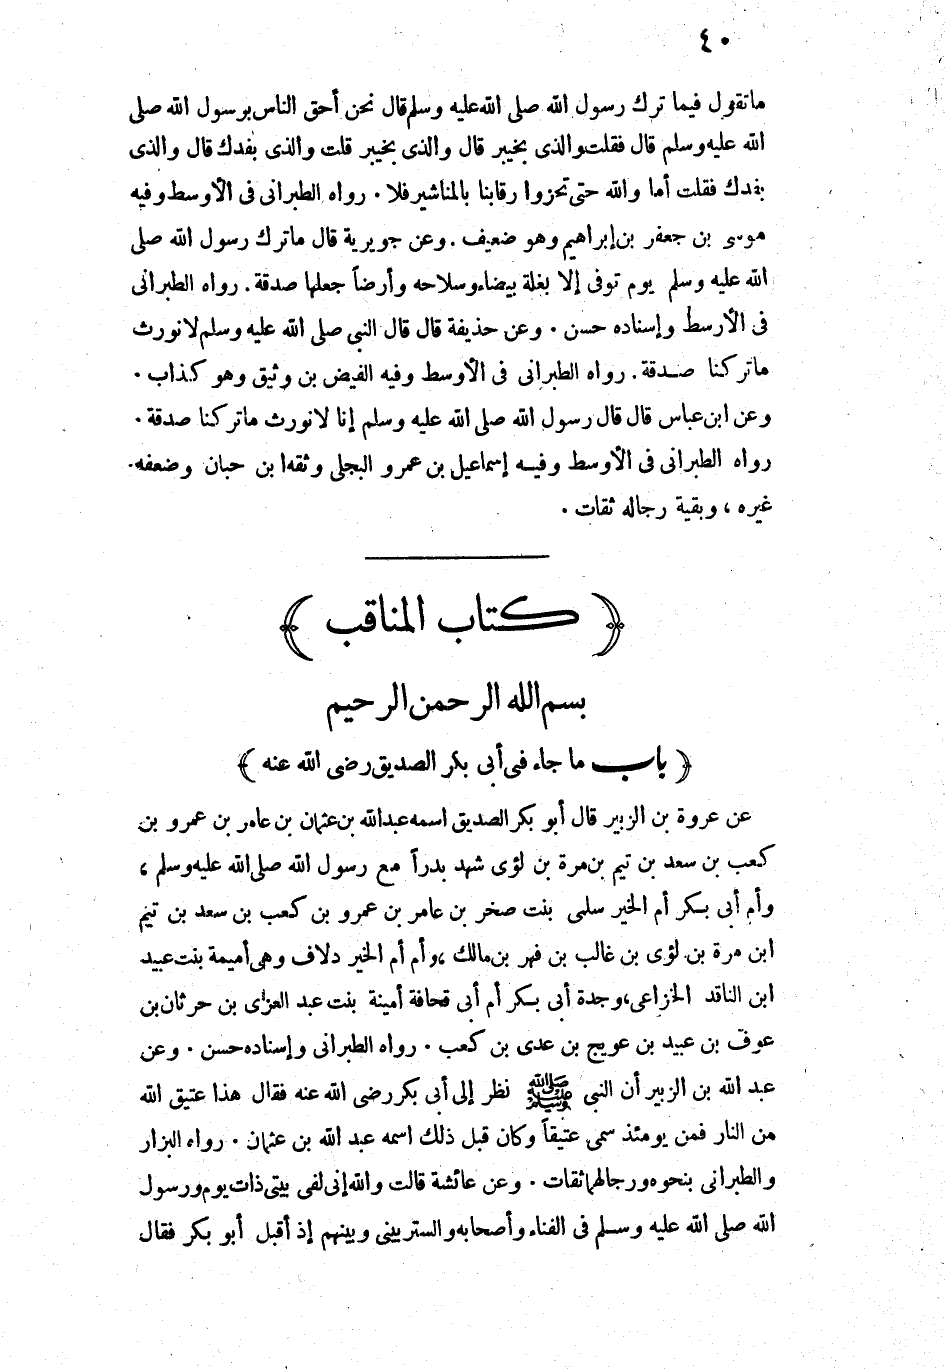 ٤٠
ماتقول فيما ترك رسول الله صلى الله عليه وسلم قال نحن أحق الناس برسول الله صلى
الله عليه وسلم قال فقلت والذى بخيبر قال والذى بخيبر قلت والذى بفدك قال والذى
بفدك فقلت أما والله حتى تحزوا رقابنا بالمناشير فلا . رواه الطبرانى فى الأوسط وفيه
موسى بن جعفر بن إبراهيم وهو ضعيف . وعن جويرية قال ماترك رسول الله صلى
الله عليه وسلم يوم توفى إلا بغلة بيضاء وسلاحه وأرضاً جعلها صدقة . رواه الطبرانى
فى الأرسط وإسناده حسن . وعن حذيفة قال قال النبى صلى الله عليه وسلم لانورث
ماتركنا صدقة . رواه الطبرانى فى الأوسط وفيه الفيض بن وثيق وهو كذاب .
وعن ابن عباس قال قال رسول الله صلى الله عليه وسلم إنا لانورث ماتركنا صدقة .
رواه الطبرانى فى الأوسط وفيه إسماعيل بن عمرو البجلى وثقه ابن حبان وضعفه
غيره ، وبقية رجاله ثقات .
﴿ كتاب المناقب ﴾
بسم الله الرحمن الرحيم
﴿ باب ما جاء فى أبى بكر الصديق رضى الله عنه ﴾
عن عروة بن الزبير قال أبو بكر الصديق اسمه عبدالله بن عثمان بن عامر بن عمرو بن
كعب بن سعد بن تيم بن مرة بن لؤى شهد بدراً مع رسول الله صلى الله عليه وسلم ،
وأم أبى بكر أم الخير سلمى بنت صخر بن عامر بن عمرو بن كعب بن سعد بن تيم
ابن مرة بن لؤى بن غالب بن فهر بن مالك ، وأم أم الخير دلاف وهى أميمة بنت عبيد
ابن الناقد الخزاعى ، وجدة أبى بكر أم أبى قحافة أمينة بنت عبد العزى بن حرثان بن
عوف بن عبيد بن عويج بن عدى بن كعب . رواه الطبرانى وإسناده حسن . وعن
عبد الله بن الزبير أن النبى ﷺ نظر إلى أبى بكر رضى الله عنه فقال هذا عتيق الله
من النار فمن يومئذ سمى عتيقاً وكان قبل ذلك اسمه عبد الله بن عثمان . رواه البزار
والطبرانى بنحوه ورجالهما ثقات . وعن عائشة قالت والله إنى لفى بيتى ذات يوم ورسول
الله صلى الله عليه وسلم فى الفناء وأصحابه والستر بينى وبينهم إذ أقبل أبو بكر فقال